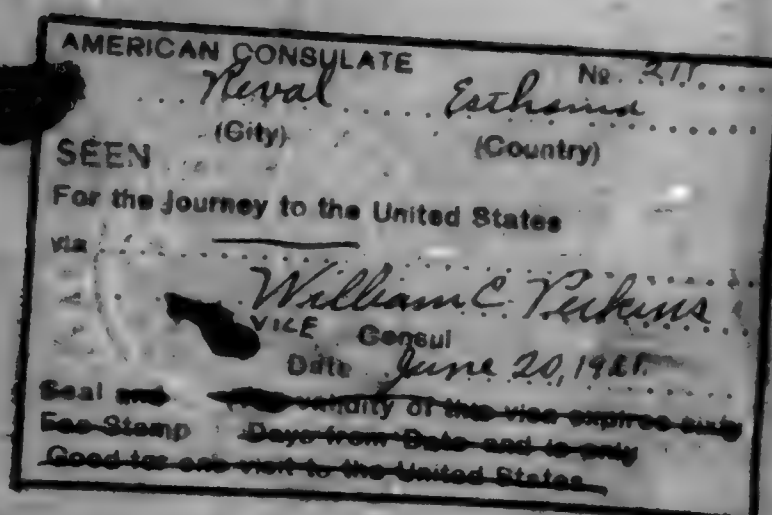 AMERICAN CONSULATE
No. 211
Reval Esthonia
(City) (Country)
SEEN
For the Journey to the United States
via
William C. Perkins
VICE Consul
Date June 20, 1921
Seal and validity of this visa expires sixty
Fee Stamp Days from Date and is only
Good for one visit to the United States